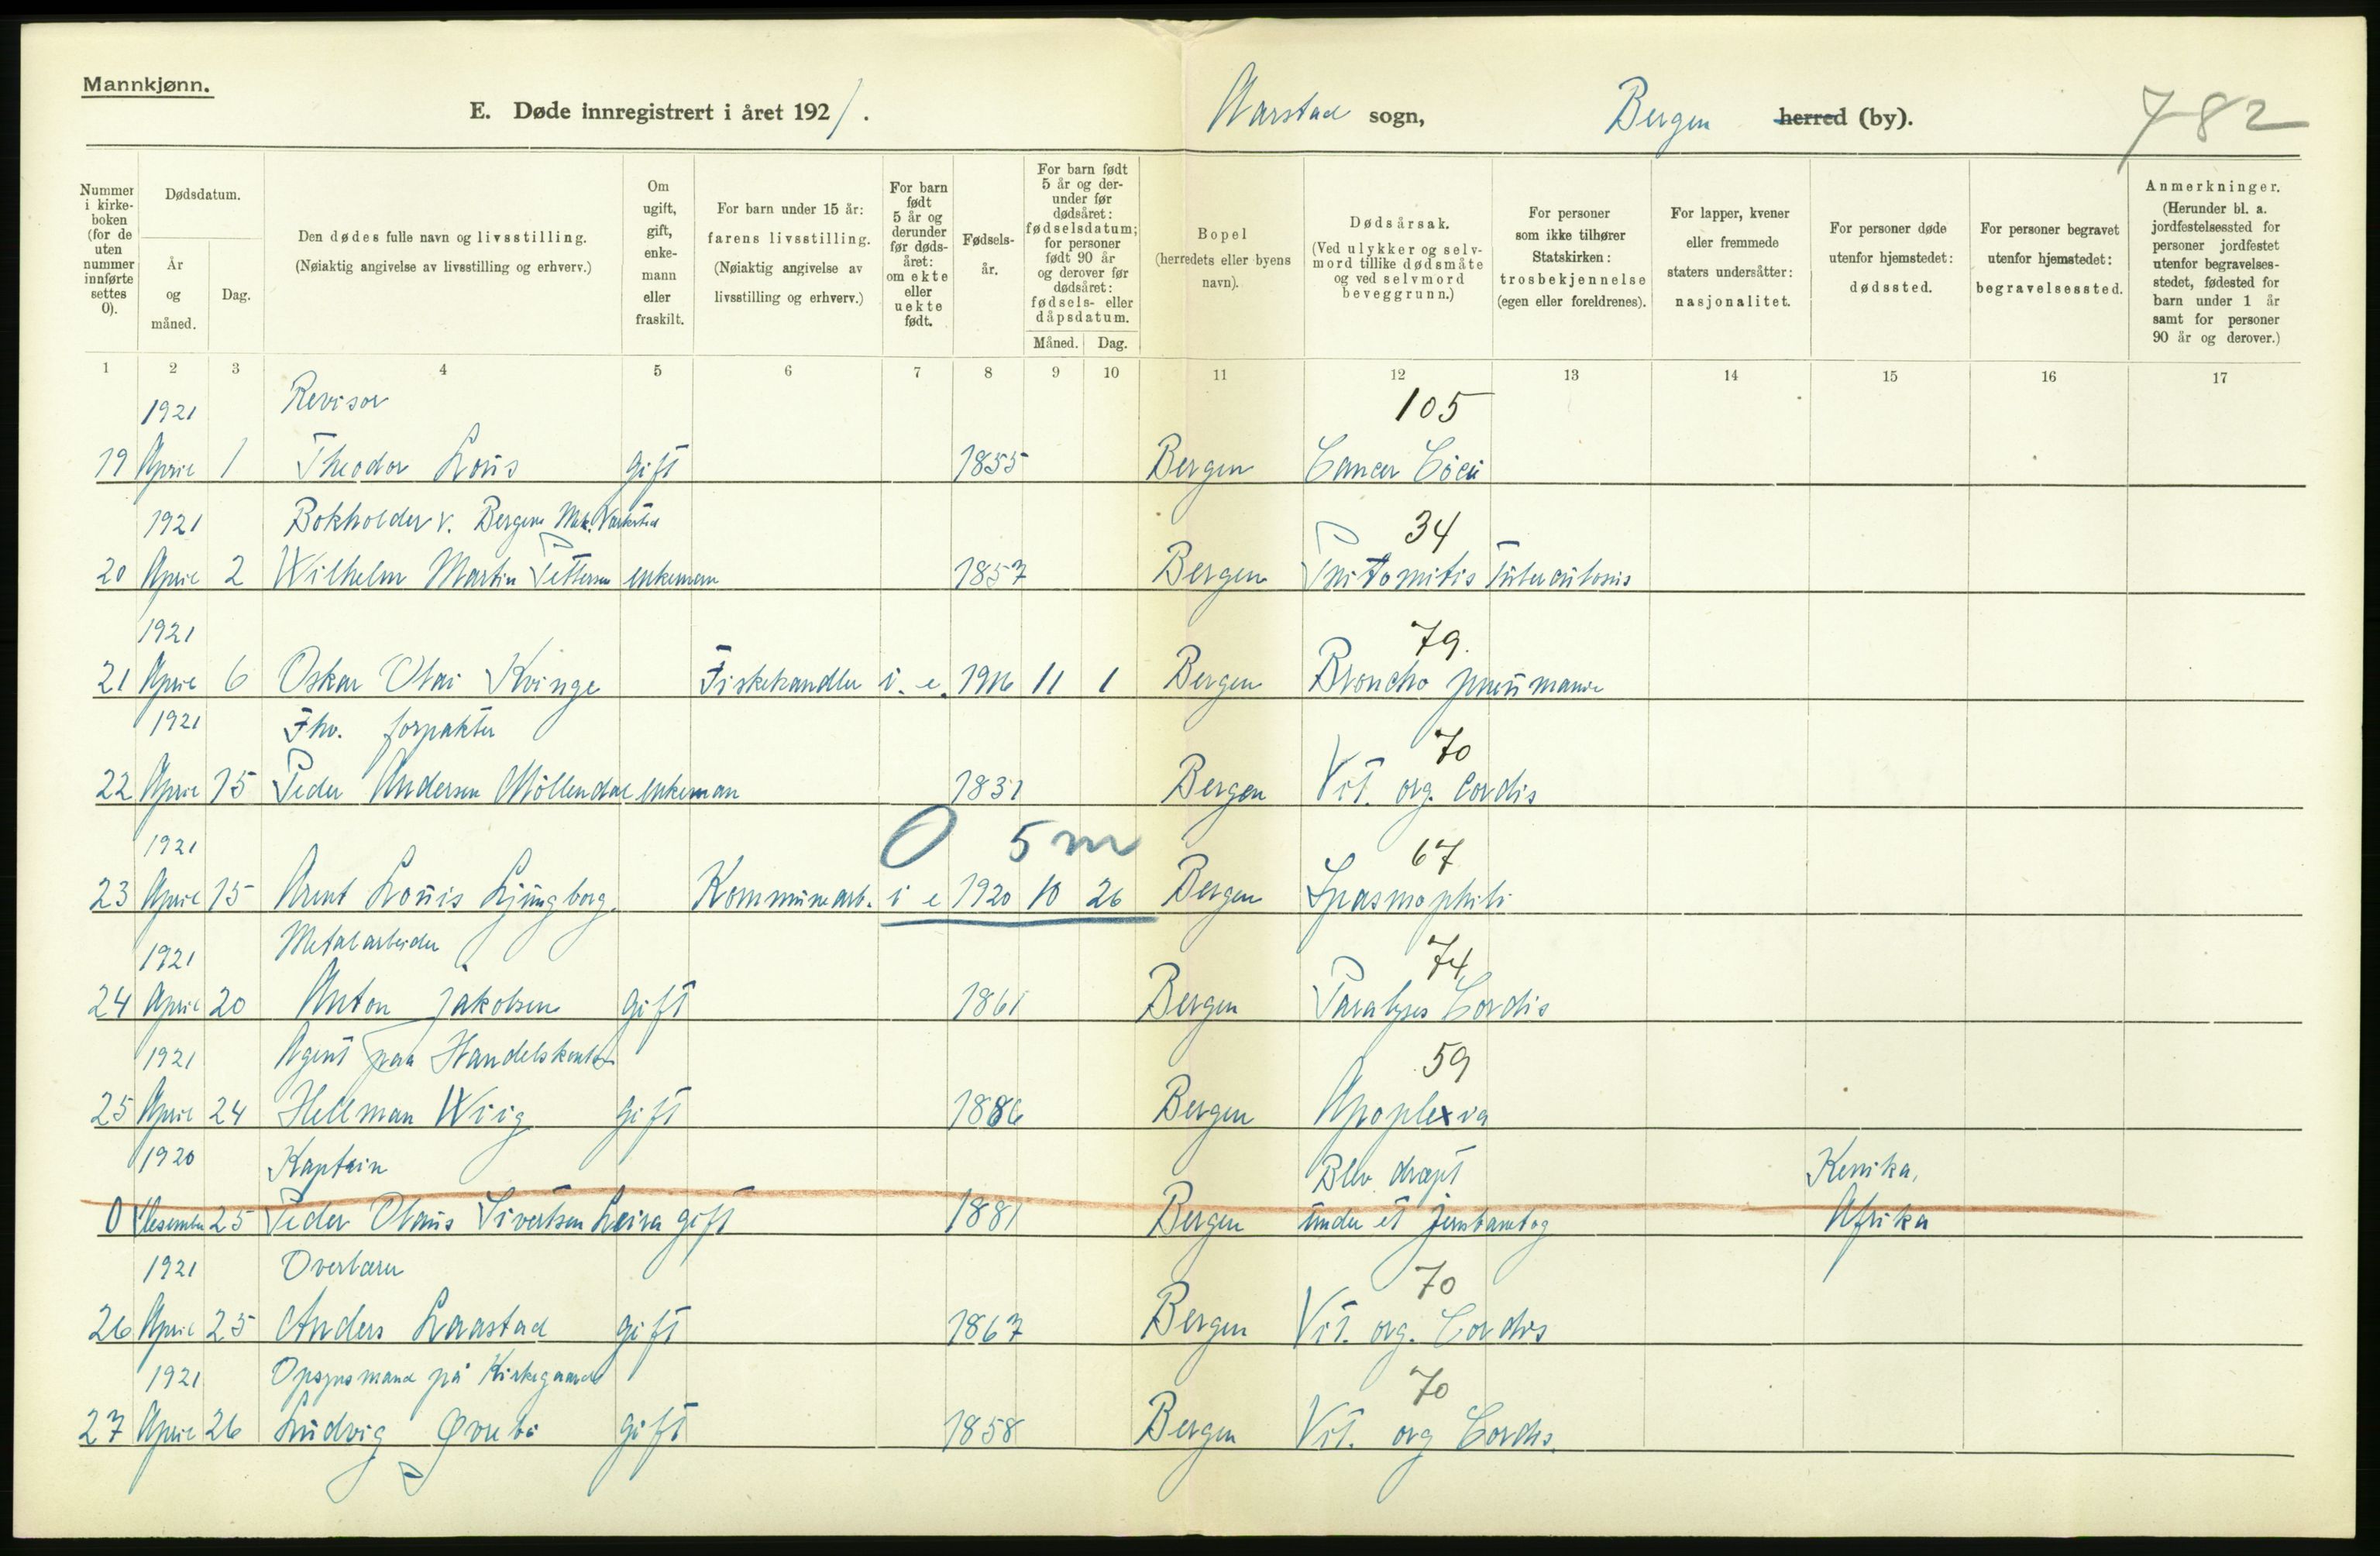 Mannkjønn.
E. Døde innregistrert i året 1921.
Aarstad sogn, Bergen herred (by).
782
Nummer i kirkeboken (for de uten nummer innførte settes 0).
Dødsdatum.
År og måned.
Dag.
Den dødes fulle navn og livsstilling.
(Nøiaktig angivelse av livsstilling og erhverv.)
Om ugift, gift, enkemann eller fraskilt.
For barn under 15 år: farens livsstilling.
(Nøiaktig angivelse av livsstilling og erhverv.)
For barn født 5 år og derunder før dødsåret: om ekte eller uekte født.
Fødselsår.
For barn født 5 år og derunder før dødsåret: fødselsdatum; for personer født 90 år og derover før dødsåret: fødsels- eller dåpsdatum.
Måned. Dag.
Bopel (herredets eller byens navn).
Dødsårsak.
(Ved ulykker og selvmord tillike dødsmåte og ved selvmord beveggrunn.)
For personer som ikke tilhører Statskirken: trosbekjennelse (egen eller foreldrenes).
For lapper, kvener eller fremmede staters undersåtter: nasjonalitet.
For personer døde utenfor hjemstedet: dødssted.
For personer begravet utenfor hjemstedet: begravelsessted.
Anmerkninger.
(Herunder bl. a. jordfestelsessted for personer jordfestet utenfor begravelsesstedet, fødested for barn under 1 år samt for personer 90 år og derover.)
1 2 3 4 5 6 7 8 9 10 11 12 13 14 15 16 17
1921 Revisor 105
19 April 1 Theodor Louis gift 1855 Bergen Cancer Coeci
1921 Bokholder v. Bergens Mek. Værksted 34
20 April 2 Wilhelm Martin Pettersen enkeman 1857 Bergen Tuberculosis
1921 79.
21 April 6 Oskar Olai Kvinge Fiskehandler i. e. 1916 11 1 Bergen Broncho pneumanie
1921 Fhv. forpakter 70
22 April 15 Peder Andersen Möllendal enkeman 1831 Bergen Vit. org. Cordis
1921 0 5 m 67
23 April 15 Arent Louis Ljungborg Kommunearb. i e 1920 10 26 Bergen Spasmophili
1921 Metalarbeider 74
24 April 20 Anton Jakobsen gift 1861 Bergen Paralyses Cordis
1921 Agent paa Handelskontor 59
25 April 24 Hellman Wiig gift 1886 Bergen Apoplexia
1920 Kaptein Blev dræpt Kenika,
0 Desember 25 Peder Olaus Sivertsen Leira gift 1881 Bergen under et jernbanetog Afrika
1921 Overlærer 70
26 April 25 Anders Laastad gift 1867 Bergen Vit. org. Cordis
1921 Opsynsmand på Kirkegaard 70
27 April 26 Ludvig Øvrebö gift 1858 Bergen Vit. org Cordis.